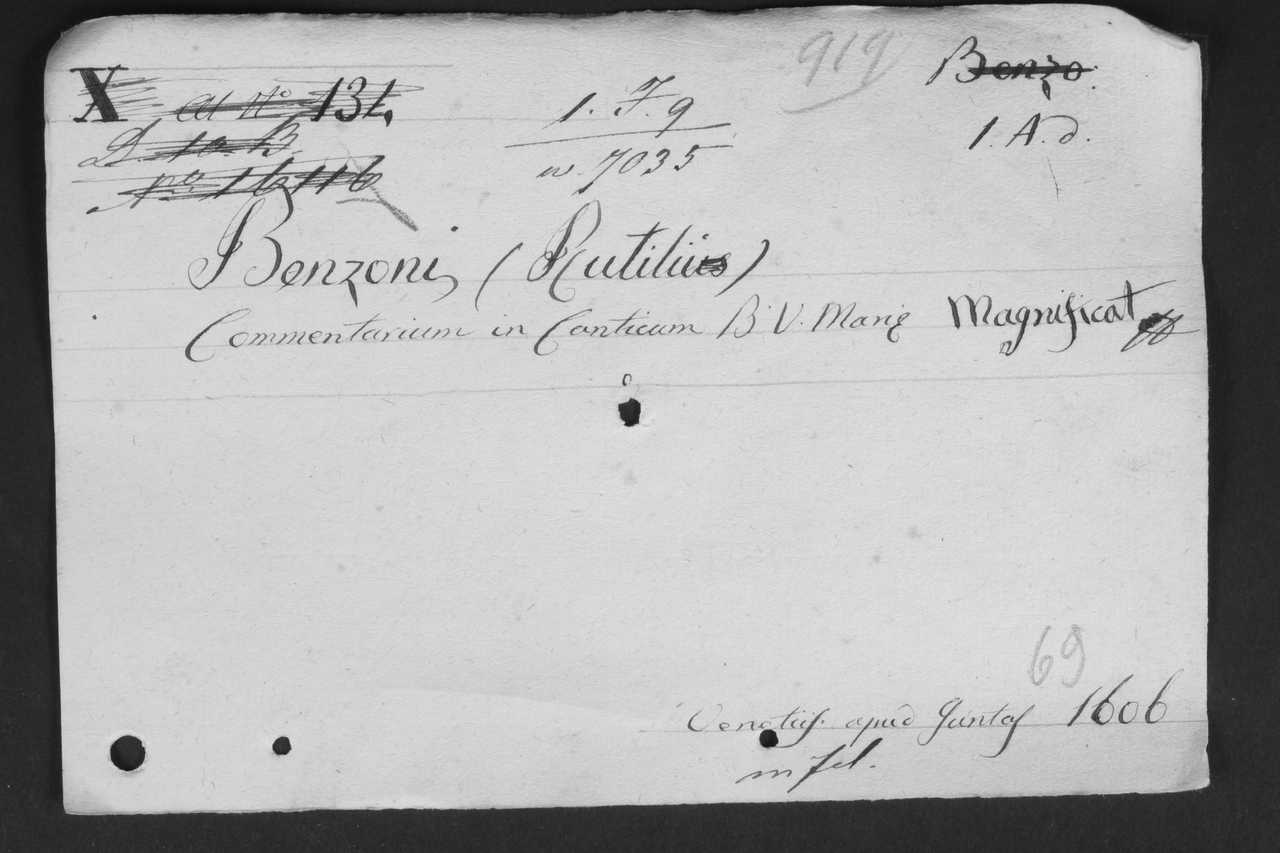 X 131.
1. F. 9
n. 7035
919
Benzo.
1. A. d.
Benzoni, (Rutilii)
Commentarium in Canticum B. V. Marię Magnificat
69
Venetiis apud Juntas 1606
in fol.